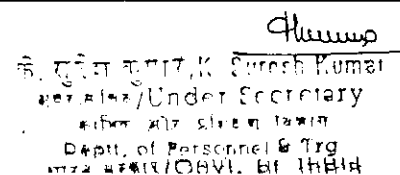 के. सुरेश कुमार/K. Suresh Kumar
अवर सचिव/Under Secretary
कार्मिक और प्रशिक्षण विभाग
Deptt. of Personnel & Trg
भारत सरकार/Govt. of India